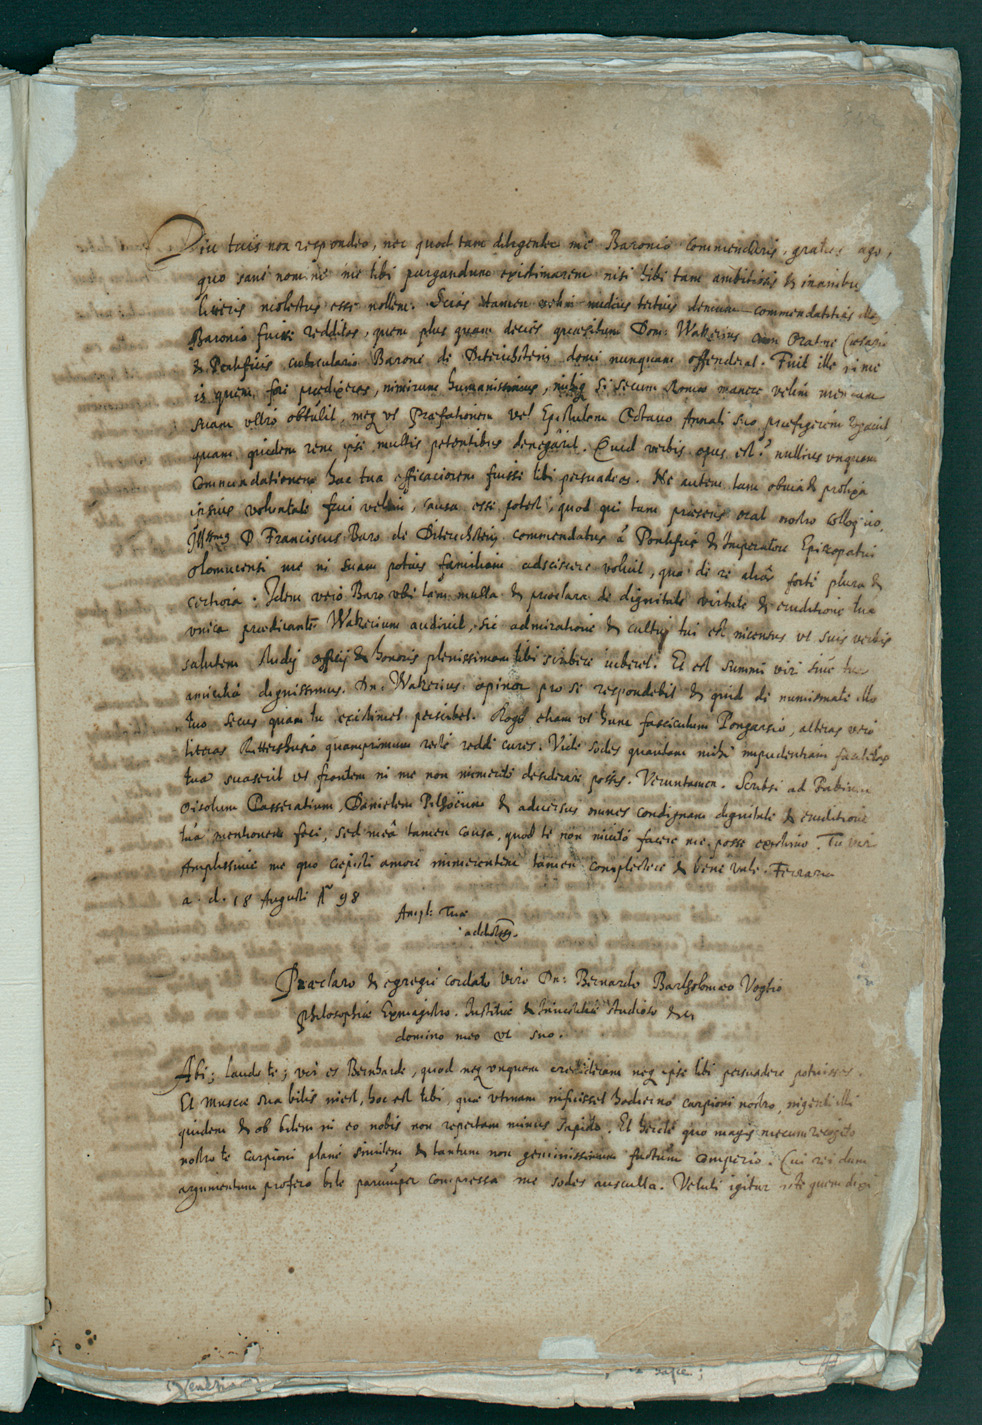 Diu tuis non respondeo, nec quod tam diligenter me Baronio commendaris, gratias ago,
quo sane nomine me tibi purgandum existimarem nisi tibi tam ambitiosis & inanibus
literis molestus esse nollem. Scias tamen velim nudius tertius demum commendatitias
Baronio fuisse redditas, quem plus quam decies quaesitum Dom: Wakerius cum Oratore Caesario
& Pontificis cubiculario Barone de Diterichstein domi nunquam offenderat. Fuit ille in me
is quem fore praedixeras, nimirum humanissimus, si secum Romae manere velim mensam
suam ultro obtulit, meq vt Praefationem vel Epistolam Octavo Annali suo praefigerem
quam quidem rem ipse multis petentibus denegavit. Quid verbis opus est? nullius vnquam
Commendationem hac tua efficaciorem fuisse tibi persuadeas. Ne autem tam obvia & prolixa
ipsius voluntate frui velim, causa esse potest, quod qui tum praesens erat nostro colloquio,
D Franciscus Baro de Diterichstein commendatus à Pontifice & Imperatore Episcopatui
Olomucensi me in suam potius familiam adsciscere voluit, qua de re aliàs forte plura &
certiora. Idem vero Baro vbi tam multa & praeclara de dignitate virtute & eruditione tua
vnice praedicante Wakerium audivit, sic admiratione & cultu tui est incensus vt suis verbis
salutem studij officij & honoris plenissimam tibi scribere iuberet. Et est summi viri
amicitiâ dignissimus. Dn. Wakerius opinor pro se respondebit & quid de numismate illo
tuo secus quam tu existimet perscribet. Rogo etiam vt hunc fasciculum Pongarsio, alteras vero
literas Rittershusio quamprimum recte reddi cures. Vide sodes quantam mihi impudentiam facilitas
tua suaserit vt frontem in me non immerito desiderare posses. Veruntamen. Scribsi ad
Passeratium, Danielem & adversus omnes condignam dignitate & eruditione
tuâ mentionem feci, sed meâ tamen causa, quod te non invito facere me posse existimo. Tu vir
Amplissime me quo coepisti amore immerentem tamen complectere & bene vale. Ferrariae
a. d. 18 Augusti 98
Ampl: Tuae
addictiss.
Praeclaro & egregie cordato viro Dn: Bernardo Bartholomaeo Voglio
Philosophiae Exmagistro. Iustitiae & Iniustitiae studioso &c
domino meo vt suo.
Abi; laudo te; vir es Bernharde, quod neq vnquam credideram neq ipse tibi persuadere potuisses.
Et muscae sua bilis inest, hoc est tibi, quae vtinam infuisset hodierno carpioni nostro, ingenti illi
quidem & ob bilem in eo nobis non repertam minus sapido. Et hercle quo magis mecum recogito
nostro te carpioni plane similem & tantum non geminissimum factum comperio. Cui rei dum
argumentum profero bile parumper compressa me sodes ausculta. Veluti igitur iste quem dixi